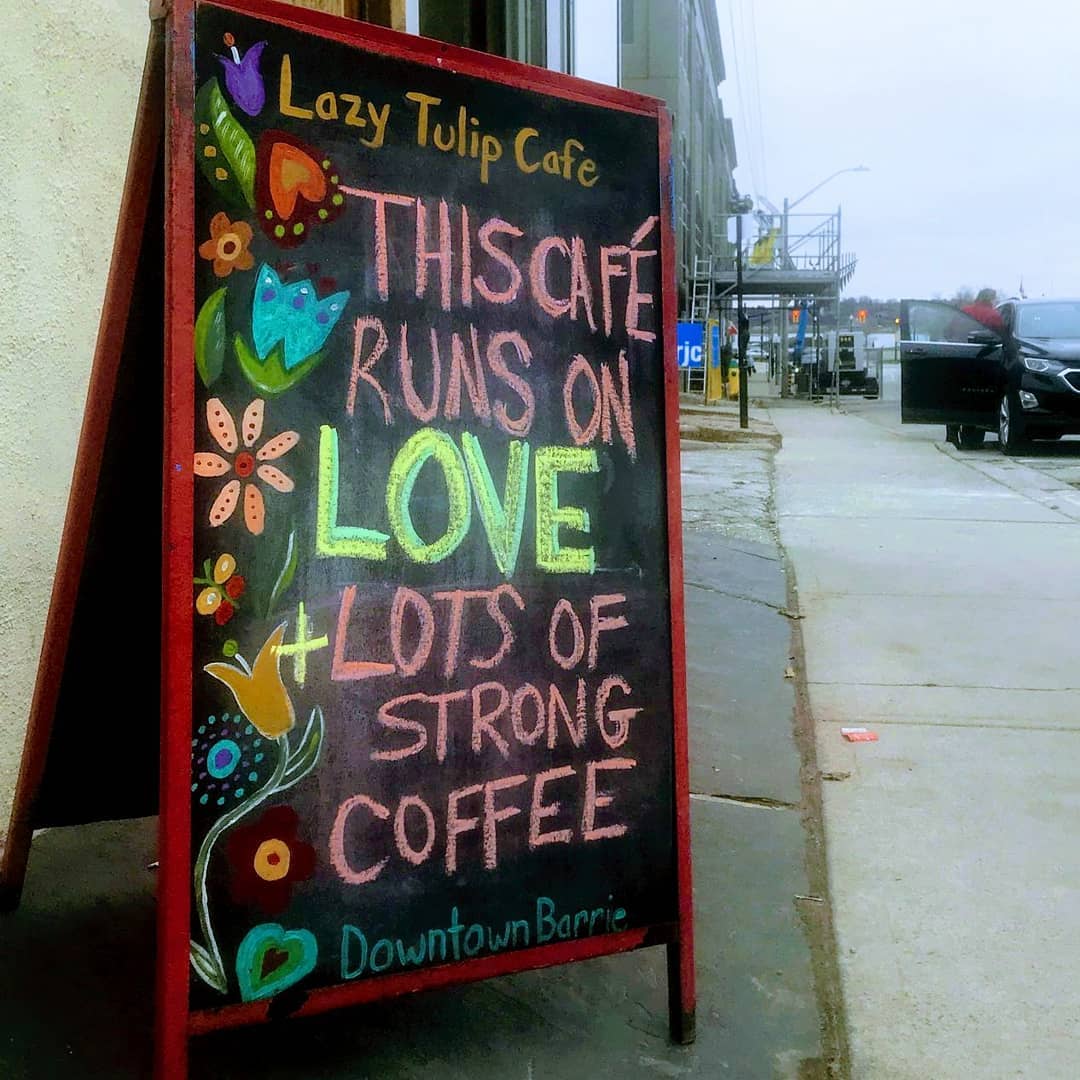 Lazy Tulip Cafe
THIS CAFÉ
RUNS ON
LOVE
+ LOTS OF
STRONG
COFFEE
Downtown Barrie
rjc